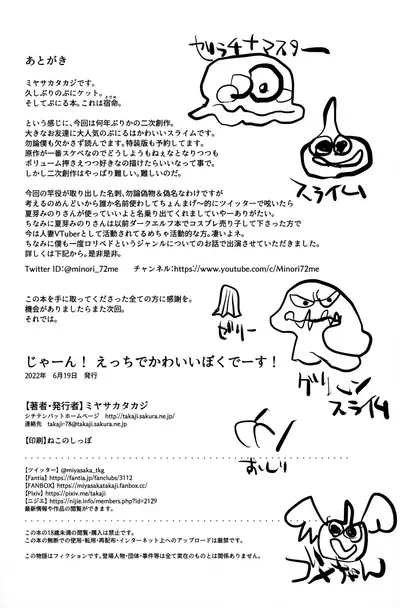 あとがき
ミヤサカタカジです。
久しぶりのぷにケット。
そしてぷにる本。これは宿命。
さだめ
という感じに、今回は何年ぶりかの二次創作。
大きなお友達に大人気のぷにるはかわいいスライムです。
勿論僕も欠かさず読んでます。特装版も予約してます。
原作が一番スケベなのでどうしようもねぇなとなりつつも
ボリューム押さえつつ好きなの描けたらいいなって事で。
しかし二次創作はやっぱり難しい。難しいのだ。
今回の竿役が取り出した名刺、勿論偽物&偽名なわけですが
考えるのめんどいから誰か名前使わしてちょんまげ〜的にツイッターで呟いたら
夏芽みのりさんが使っていいよと名乗り出てくれましていやーありがたい。
ちなみに夏芽みのりさんは以前ダークエルフ本でコスプレ売り子して下さった方で
今は人妻VTuberとして活動されてるめちゃ活動的な方。凄いよネ。
ちなみに僕も一度ロリベドというジャンルについてのお話で出演させていただきました。
詳しくは下記から。是非是非。
Twitter ID:@minori_72me チャンネル:https://www.youtube.com/c/Minori72me
この本を手に取ってくださった全ての方に感謝を。
機会がありましたらまた次回。
それでは。
じゃーん！ えっちでかわいいぼくでーす！
2022年 6月19日 発行
【著者・発行者】ミヤサカタカジ
シチテンバットホームページ http://takaji.sakura.ne.jp/
連絡先 takaji-78@takaji.sakura.ne.jp
【印刷】ねこのしっぽ
【ツイッター】@miyasaka_tkg
【Fantia】https://fantia.jp/fanclubs/3112
【FANBOX】https://miyasakatakaji.fanbox.cc/
【Pixiv】https://pixiv.me/takaji
【ニジエ】https://nijie.info/members.php?id=2129
最新情報や作品の閲覧ができます。
この本の18歳未満の閲覧・購入は禁止です。
この本の無断での使用・転用・再配布・インターネット上へのアップロードは厳禁です。
この物語はフィクションです。登場人物・団体・事件等は全て実在のものとは関係ありません。
ゼラチナマスター
スライム
ゼリー
グリーン
スライム
おしり